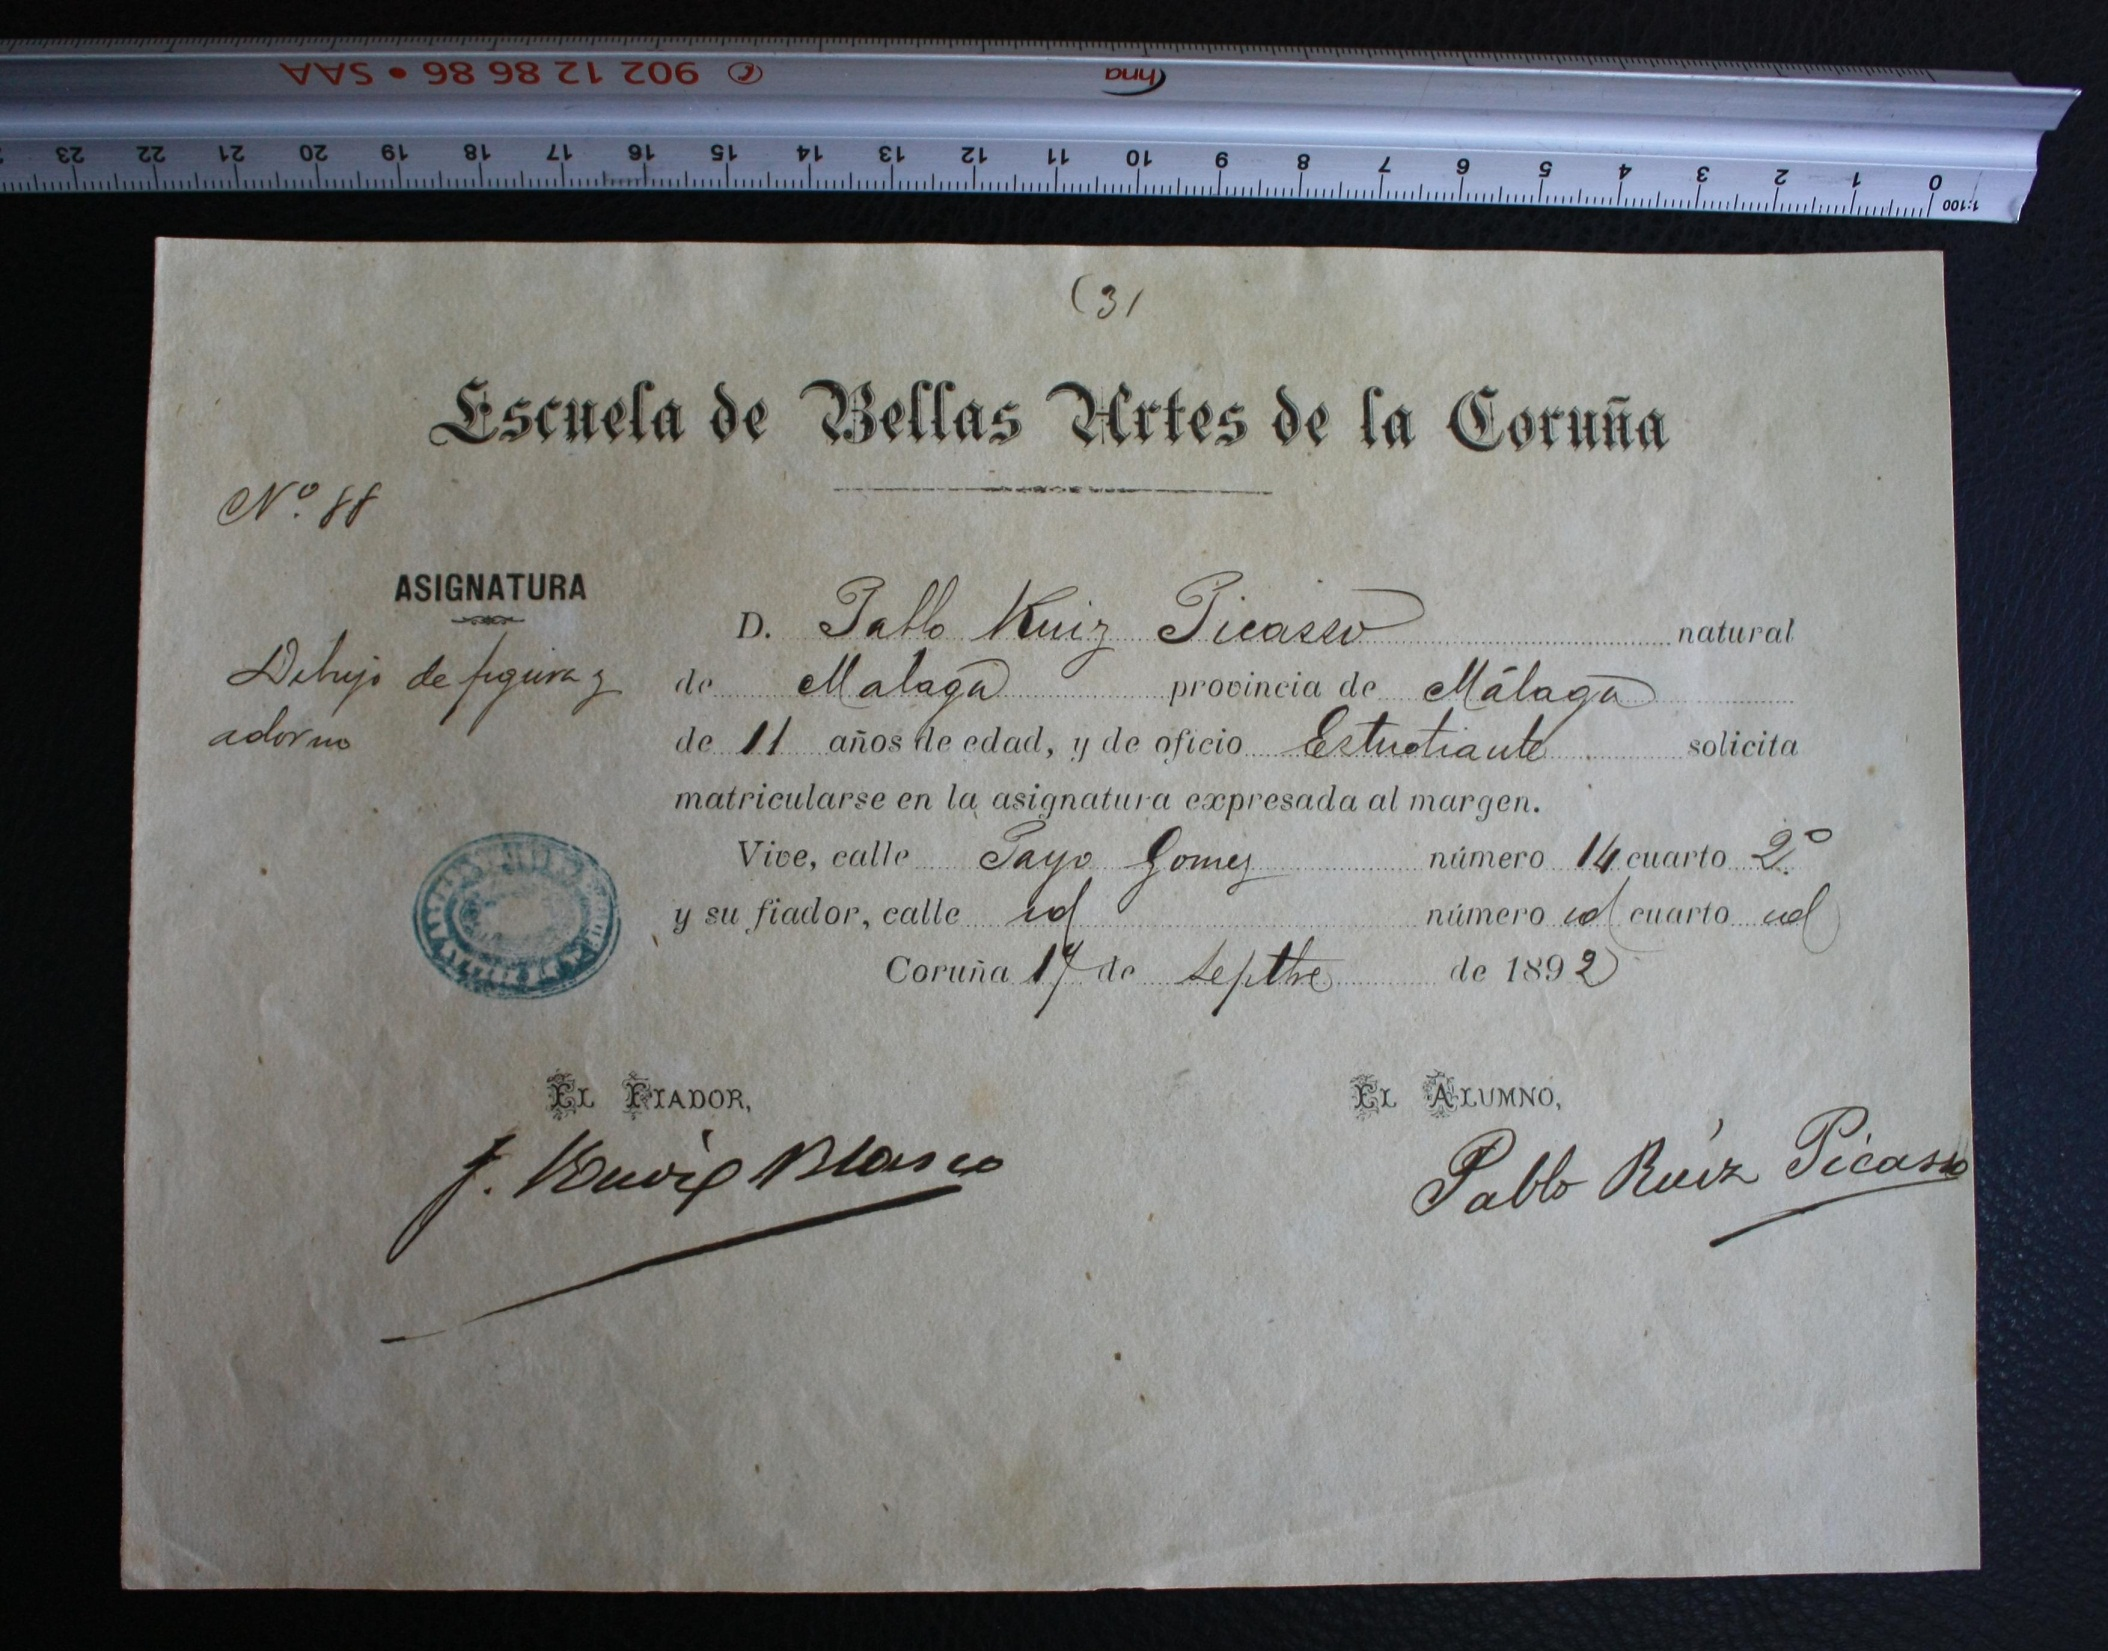 902 12 86 86 • SAA
23 22 21 20 19 18 17 16 15 14 13 12 11 10 9 8 7 6 5 4 3 2 1 0 1:100
(3)
Escuela de Bellas Artes de la Coruña
Nº. 88
ASIGNATURA
Dibujo de figura y
adorno
D. Pablo Ruiz Picasso natural
de Malaga provincia de Málaga
de 11 años de edad, y de oficio Estudiante solicita
matricularse en la asignatura expresada al margen.
Vive, calle Payo Gomez número 14 cuarto 2º
y su fiador, calle id número id cuarto id
Coruña 17 de Septbre de 1892
EL FIADOR,
J. Ruiz Blasco
EL ALUMNO,
Pablo Ruiz Picasso